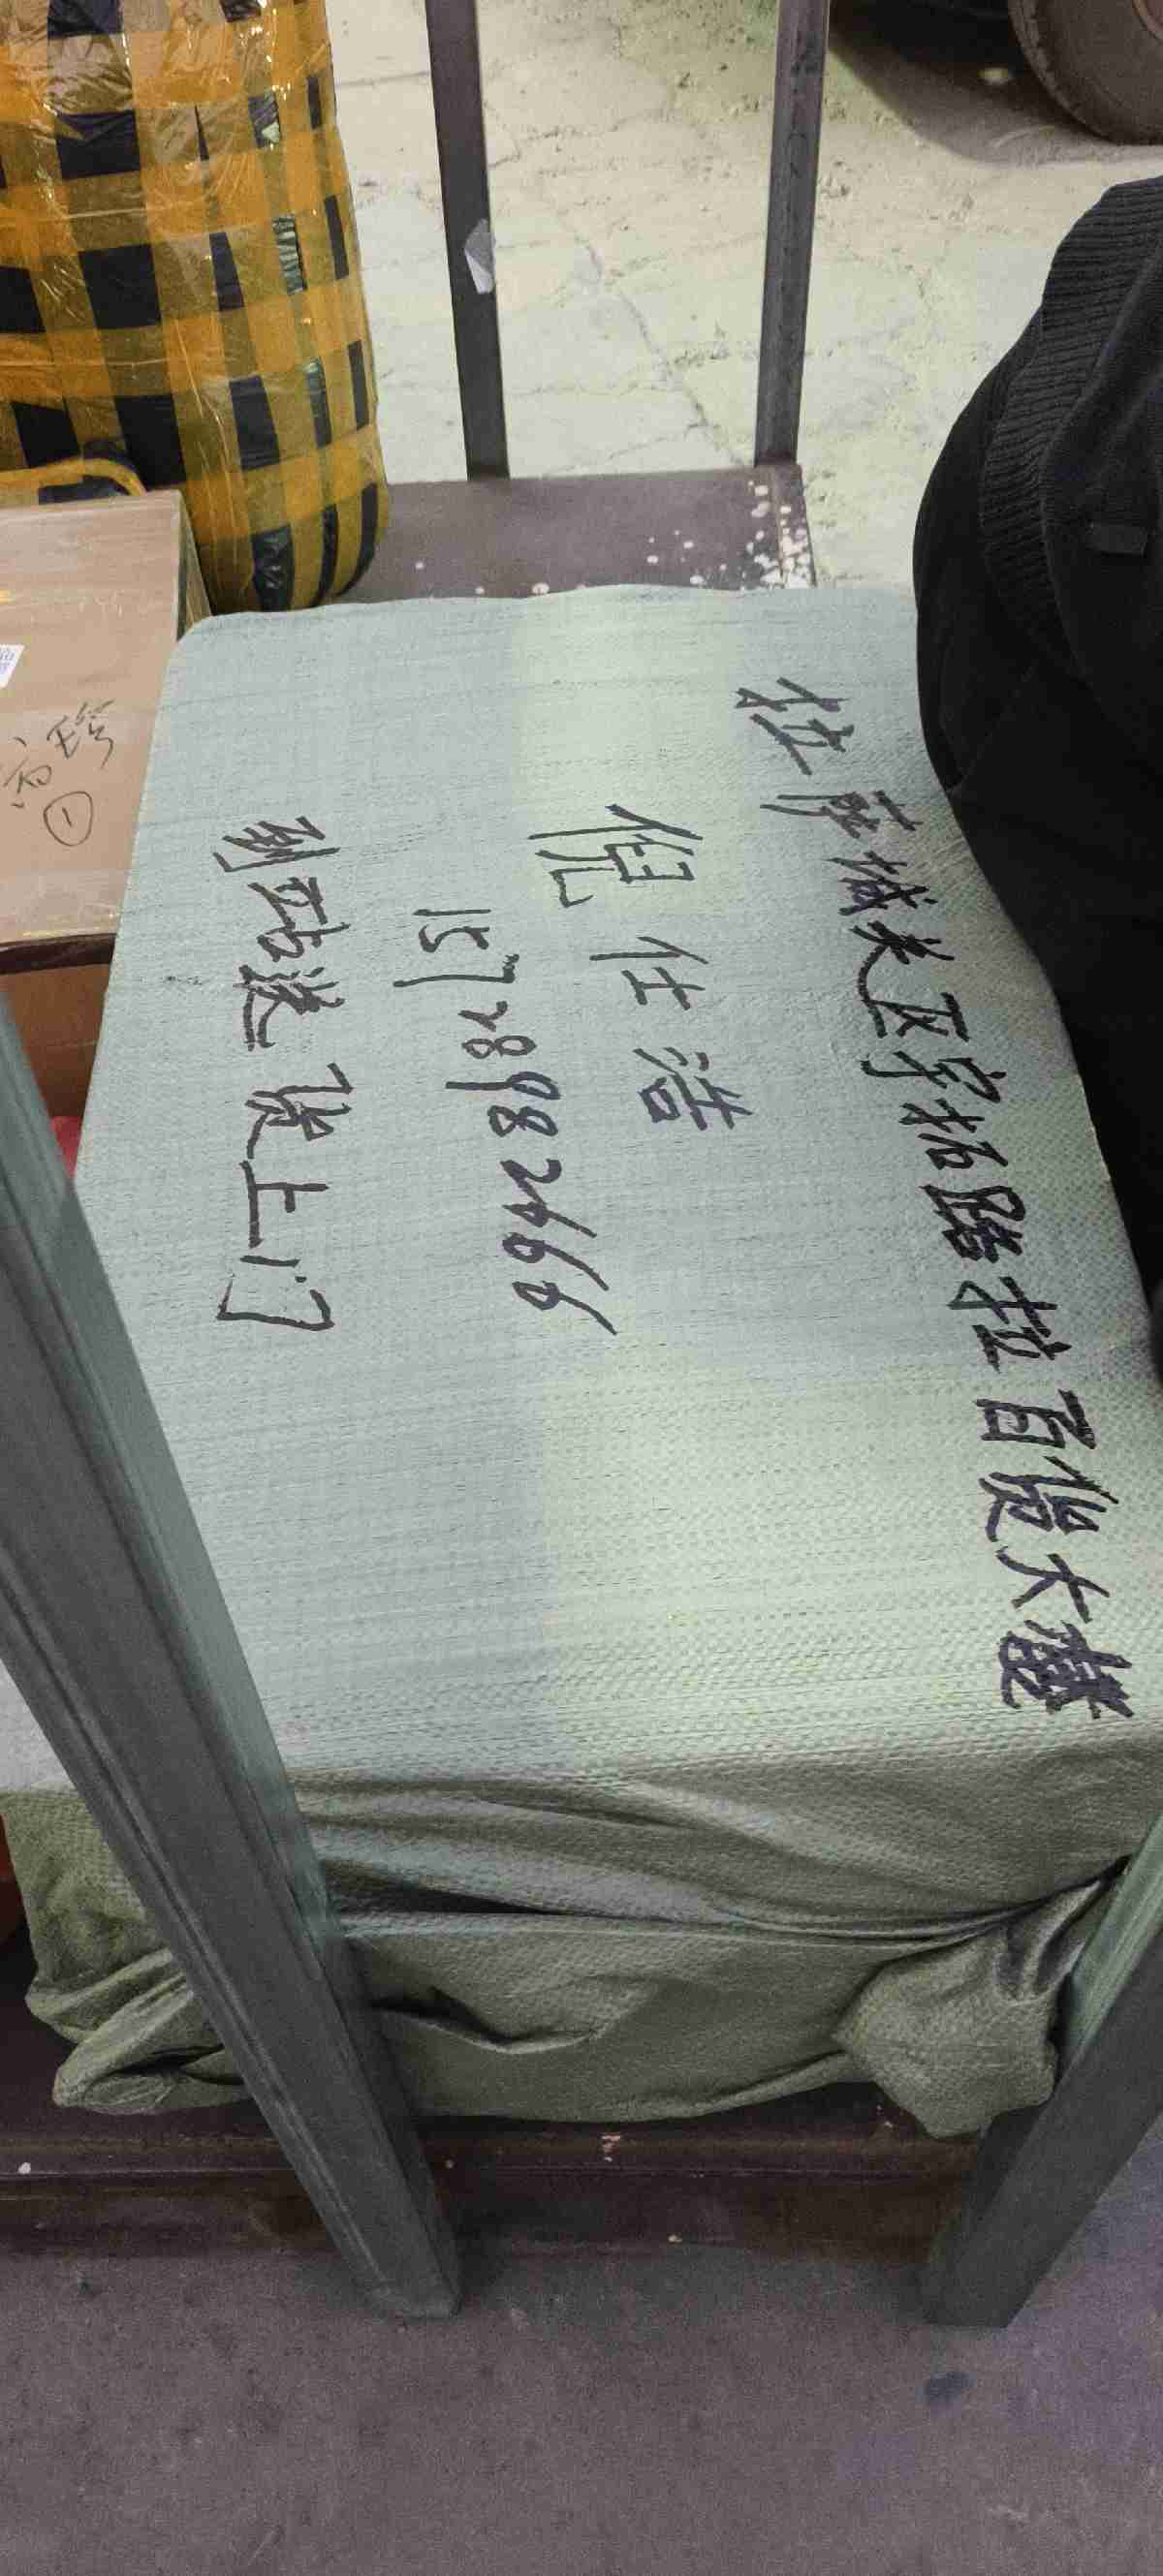 拉萨城关区宇拓路拉百货大楼
倪仕浩
15728982666
到站送货上门
①